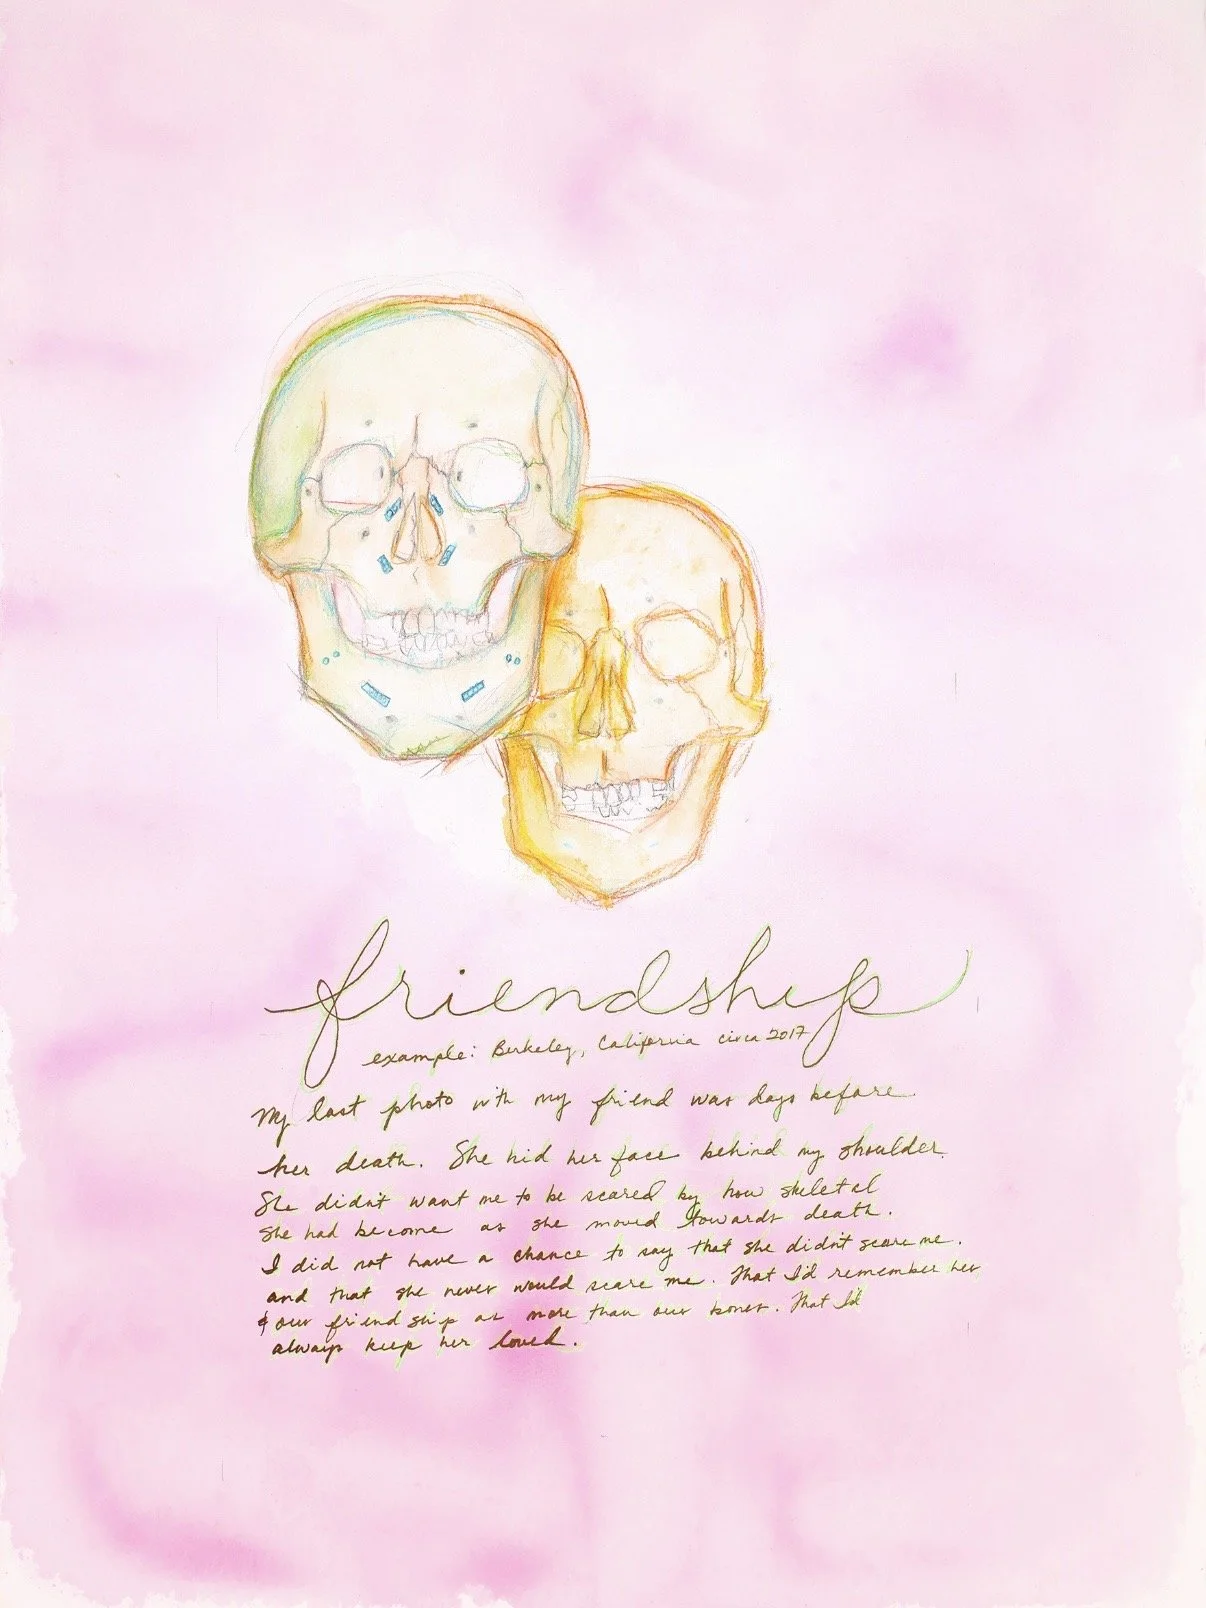 friendship
example: Berkeley, California circa 2017
My last photo with my friend was days before
her death. She hid her face behind my shoulder.
She didn't want me to be scared by how skeletal
she had become as she moved towards death.
I did not have a chance to say that she didn't scare me.
and that she never would scare me. That I'd remember her
& our friendship as more than our bones. That I'd
always keep her loved.